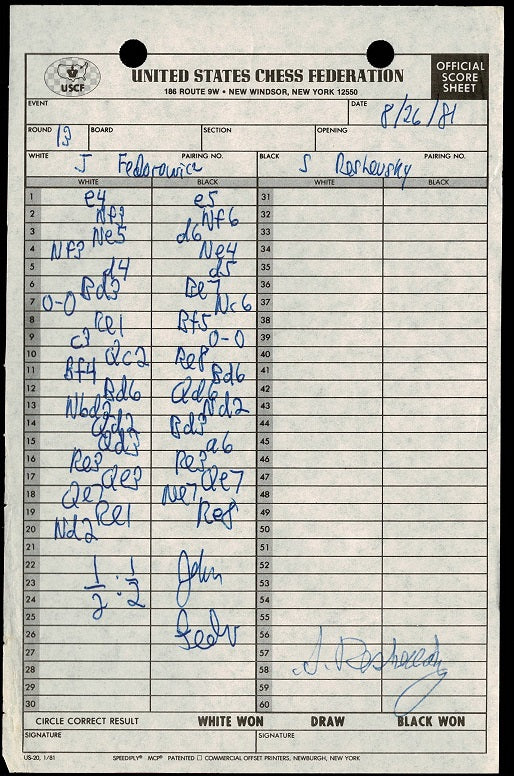 USCF
UNITED STATES CHESS FEDERATION
186 ROUTE 9W • NEW WINDSOR, NEW YORK 12550
OFFICIAL
SCORE
SHEET
EVENT DATE 8/26/81
ROUND 13 BOARD SECTION OPENING
WHITE J Fedorowicz PAIRING NO. BLACK S Reshevsky PAIRING NO.
WHITE BLACK WHITE BLACK
1 e4 e5 31
2 Nf3 Nf6 32
3 Ne5 d6 33
4 Nf3 Ne4 34
5 d4 d5 35
6 Bd3 Be7 36
7 0-0 Nc6 37
8 Re1 Bf5 38
9 c3 0-0 39
10 Qc2 Re8 40
11 Bf4 Bd6 41
12 Bd6 Qd6 42
13 Nbd2 Nd2 43
14 Qd2 Bd3 44
15 Qd3 a6 45
16 Re3 Re3 46
17 Qe3 Qe7 47
18 Qe7 Ne7 48
19 Re1 Re8 49
20 Nd2 50
21 51
22 1/2 : 1/2 John 52
23 53
24 54
25 Fedo 55
26 56
27 57
28 S. Reshevsky 58
29 59
30 60
CIRCLE CORRECT RESULT WHITE WON DRAW BLACK WON
SIGNATURE SIGNATURE
US-20, 1/81 SPEEDIPLY® MCP® PATENTED □ COMMERCIAL OFFSET PRINTERS, NEWBURGH, NEW YORK